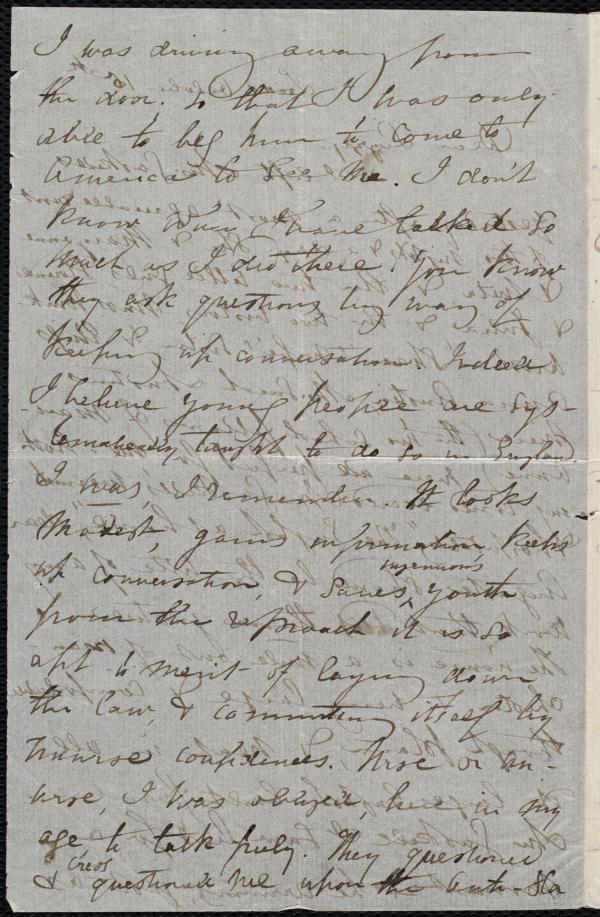 I was driving away from
the door, so that I was only
able to beg him to come to
America to see me. I don't
know when I have talked so
much as I did there. You know
they ask questions by way of
keeping up conversation. Indeed
I believe young people are sys-
tematically taught to do so in England
I was, I remember. It looks
modest, gains information keeps
up conversation, & saves ingenuous youth
from the reproach it is so
apt to merit of laying down
the law, & committing itself by
unwise confidences. Wise or un-
wise, I was obliged, here in my
age, to talk freely. They questioned
& cross questioned me upon the Anti-Sla